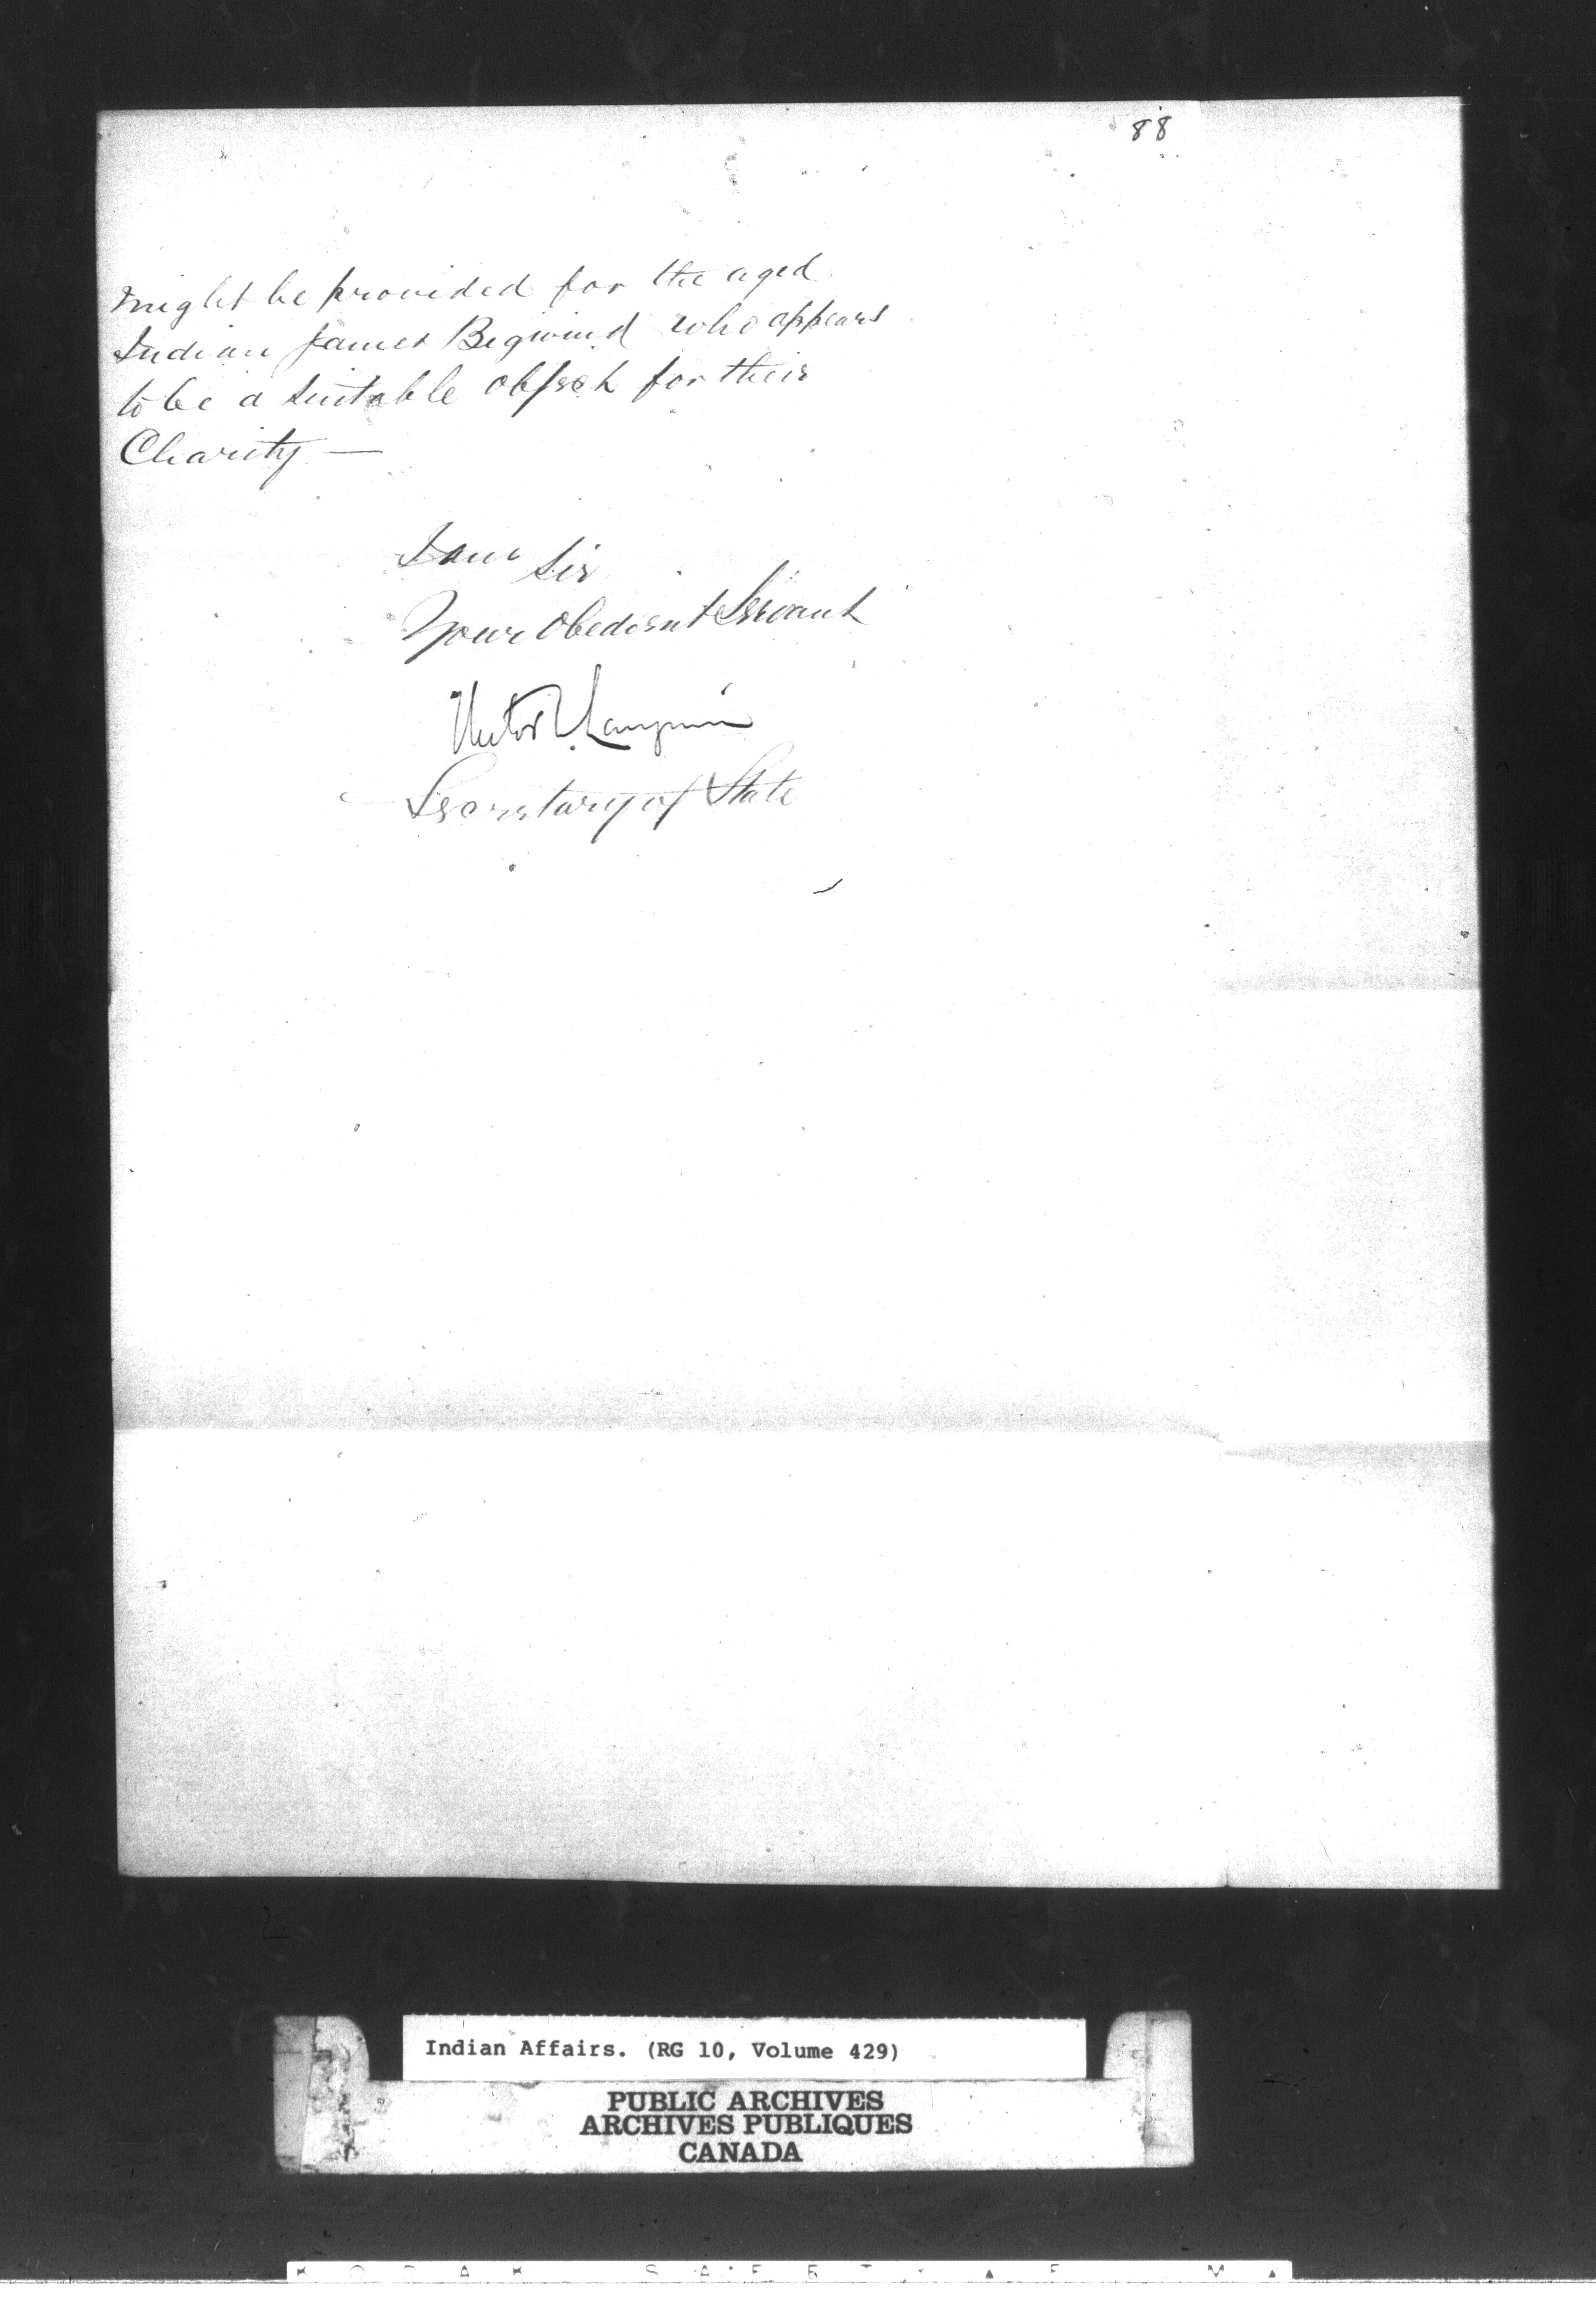 88
might be provided for the aged
Indian James Bigwind who appears
to be a suitable object for their
Charity —
I am Sir
Your Obedient Servant
Hector L. Langevin
Secretary of State
Indian Affairs. (RG 10, Volume 429)
PUBLIC ARCHIVES
ARCHIVES PUBLIQUES
CANADA